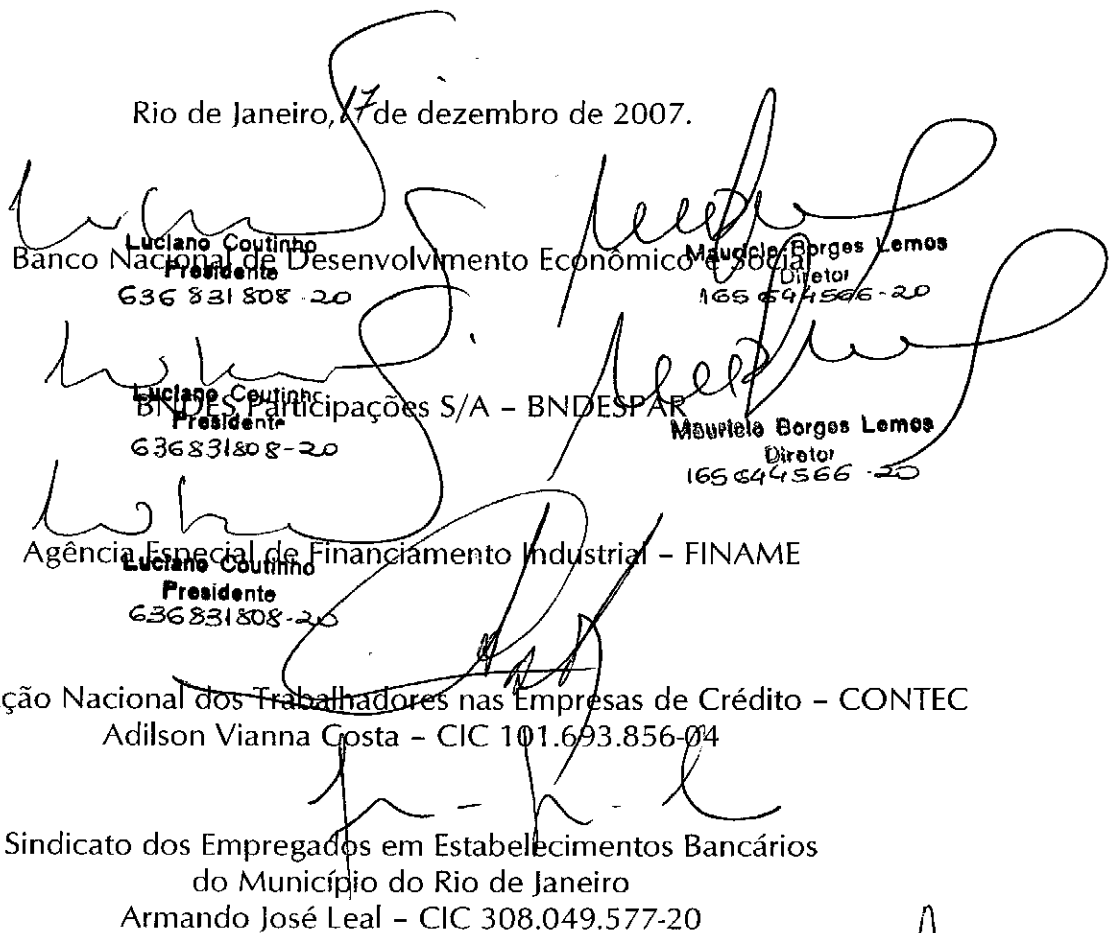 Rio de Janeiro, 17 de dezembro de 2007.
Luciano Coutinho
Banco Nacional de Desenvolvimento Econômico e Social
Presidente
636 831 808-20
Mauricio Borges Lemos
Diretor
165 644566-20
Luciano Coutinho
BNDES Participações S/A – BNDESPAR
Presidente
636831808-20
Mauricio Borges Lemos
Diretor
165 644566-20
Agência Especial de Financiamento Industrial – FINAME
Luciano Coutinho
Presidente
636831808-20
ção Nacional dos Trabalhadores nas Empresas de Crédito – CONTEC
Adilson Vianna Costa – CIC 101.693.856-04
Sindicato dos Empregados em Estabelecimentos Bancários
do Município do Rio de Janeiro
Armando José Leal – CIC 308.049.577-20